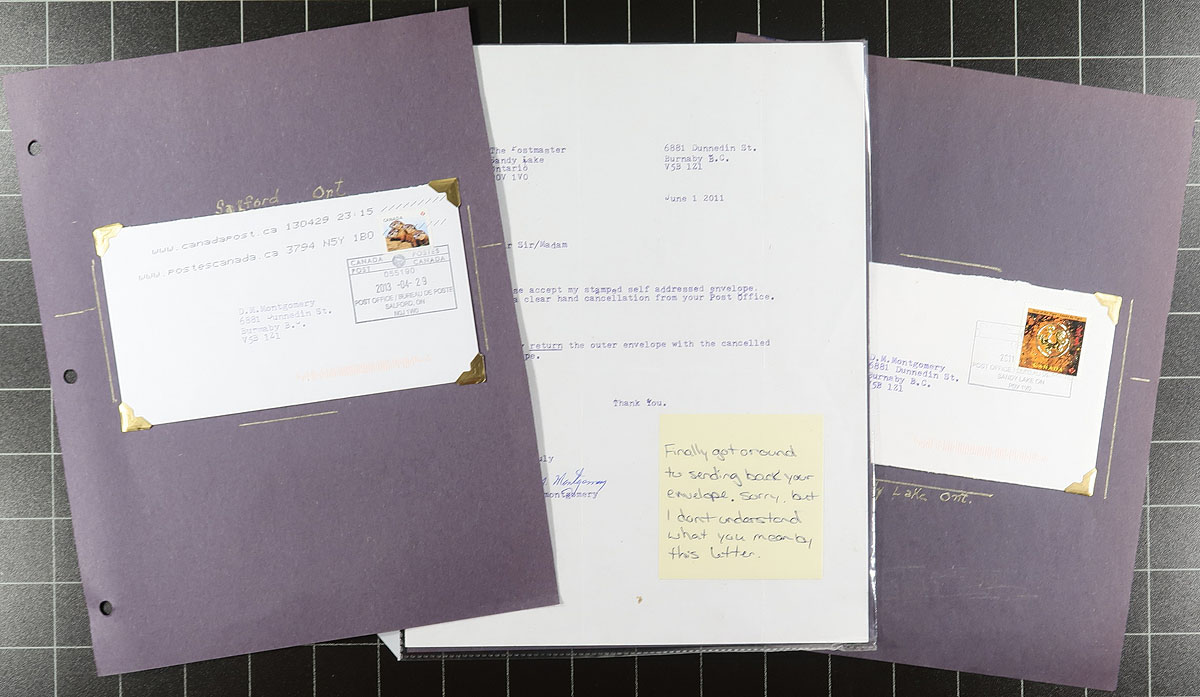 Salford Ont
www.canadapost.ca 130429 23:15
www.postescanada.ca 3794 N5Y 1B0
CANADA
CANADA POSTES
POST CANADA
055190
2013 -04- 29
POST OFFICE / BUREAU DE POSTE
SALFORD, ON
N0J 1W0
D.M.Montgomery
6881 Dunnedin St.
Burnaby B.C.
V5B 1Z1
The Postmaster
Sandy Lake
Ontario
P0V 1V0
6881 Dunnedin St.
Burnaby B.C.
V5B 1Z1
June 1 2011
r Sir/Madam
se accept my stamped self addressed envelope.
a clear hand cancellation from your Post Office.
return the outer envelope with the cancelled
pe.
Thank You.
uly
Montgomery
Montgomery
Finally got around
to sending back your
envelope. Sorry, but
I don't understand
what you mean by
this letter.
CANADA
2011
POST OFFICE
SANDY LAKE ON
P0V 1V0
D.M.Montgomery
6881 Dunnedin St.
Burnaby B.C.
V5B 1Z1
y Lake Ont.